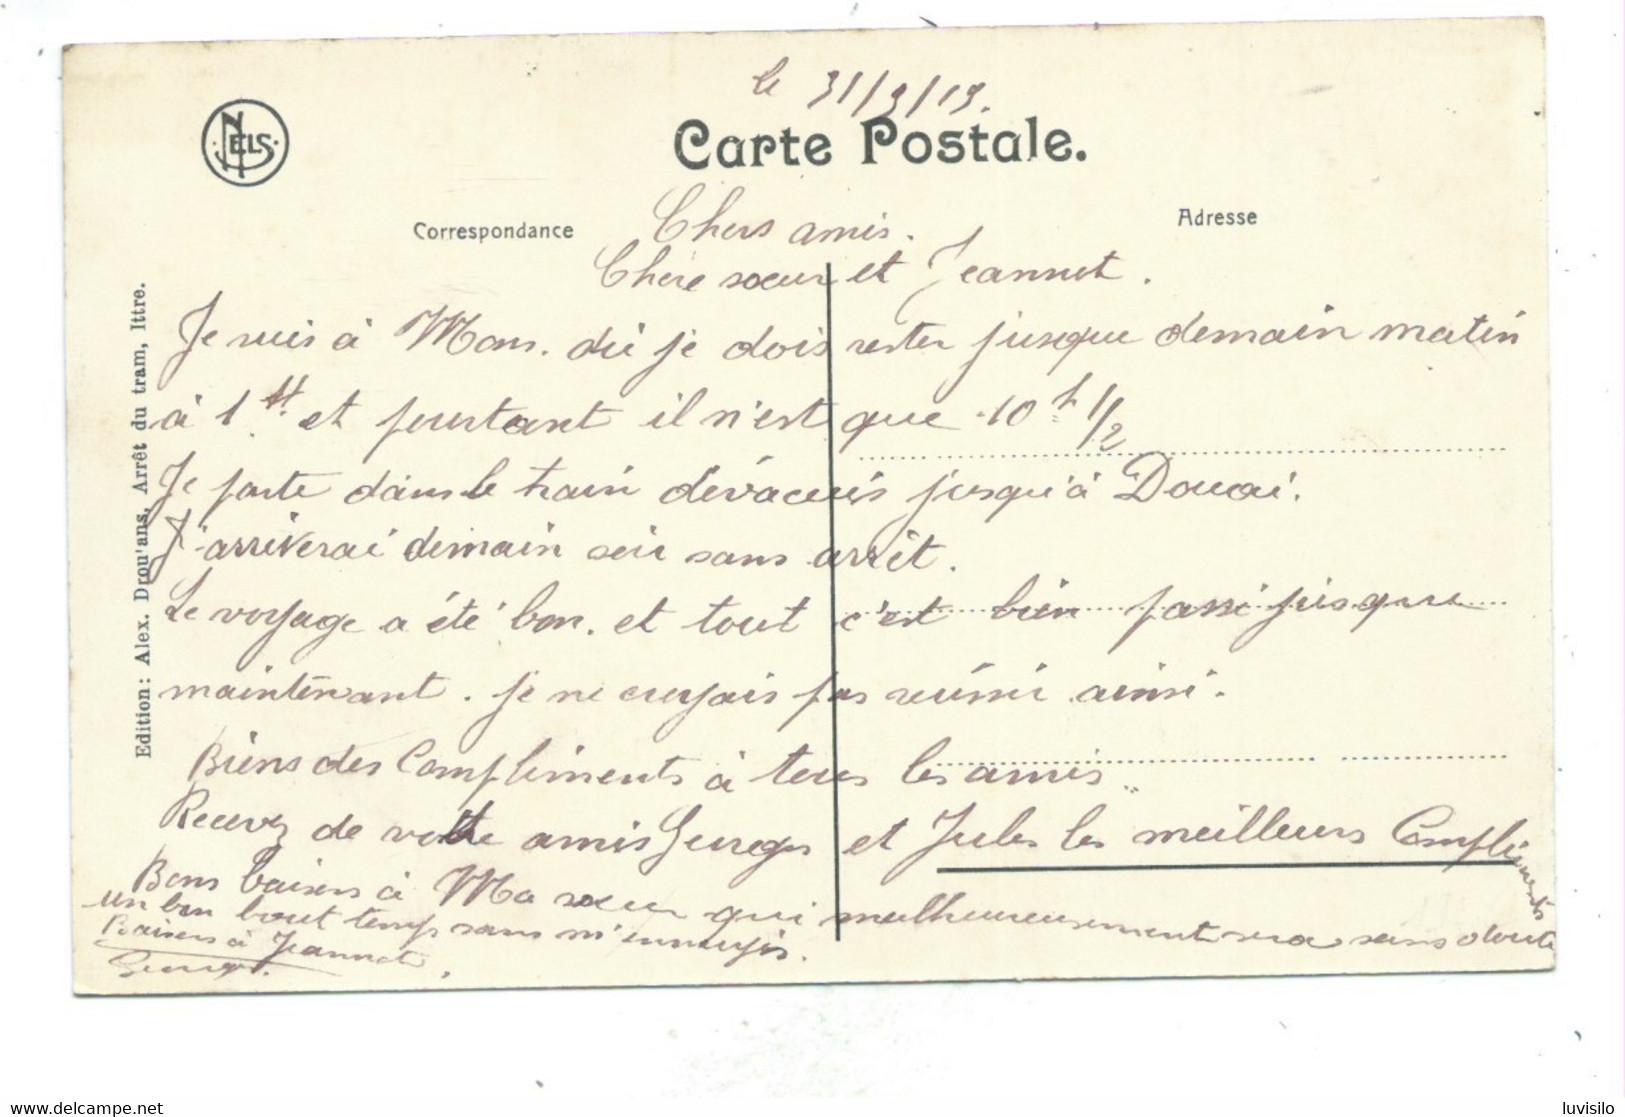 le 31/3/19.
NELS
Carte Postale.
Correspondance
Adresse
Edition: Alex. Drou'ans, Arrêt du tram, Ittre.
Chers amis.
Chère sœur et Jeannot.
Je suis à Mons. dú je dois rester jusque demain matin
à 1 H. et pourtant il n'est que 10 h 1/2
Je parte dans le train dévacués jusqu'à Douai.
J'arriverai demain soir sans arrêt.
Le voyage a été bon. et tout c'est bien passé jusque
maintenant. je ne croyais pas réussir ainsi.
Biens des Compliments à tous les amis..
Recevez de votre amis Georges et Jules les meilleurs Compliments
Bons baisers à Ma sœur qui malheureusement sera sans doute
un bon bout temps sans m'ennuyis.
Baisers à Jeannot.
Georges.
luvisilo